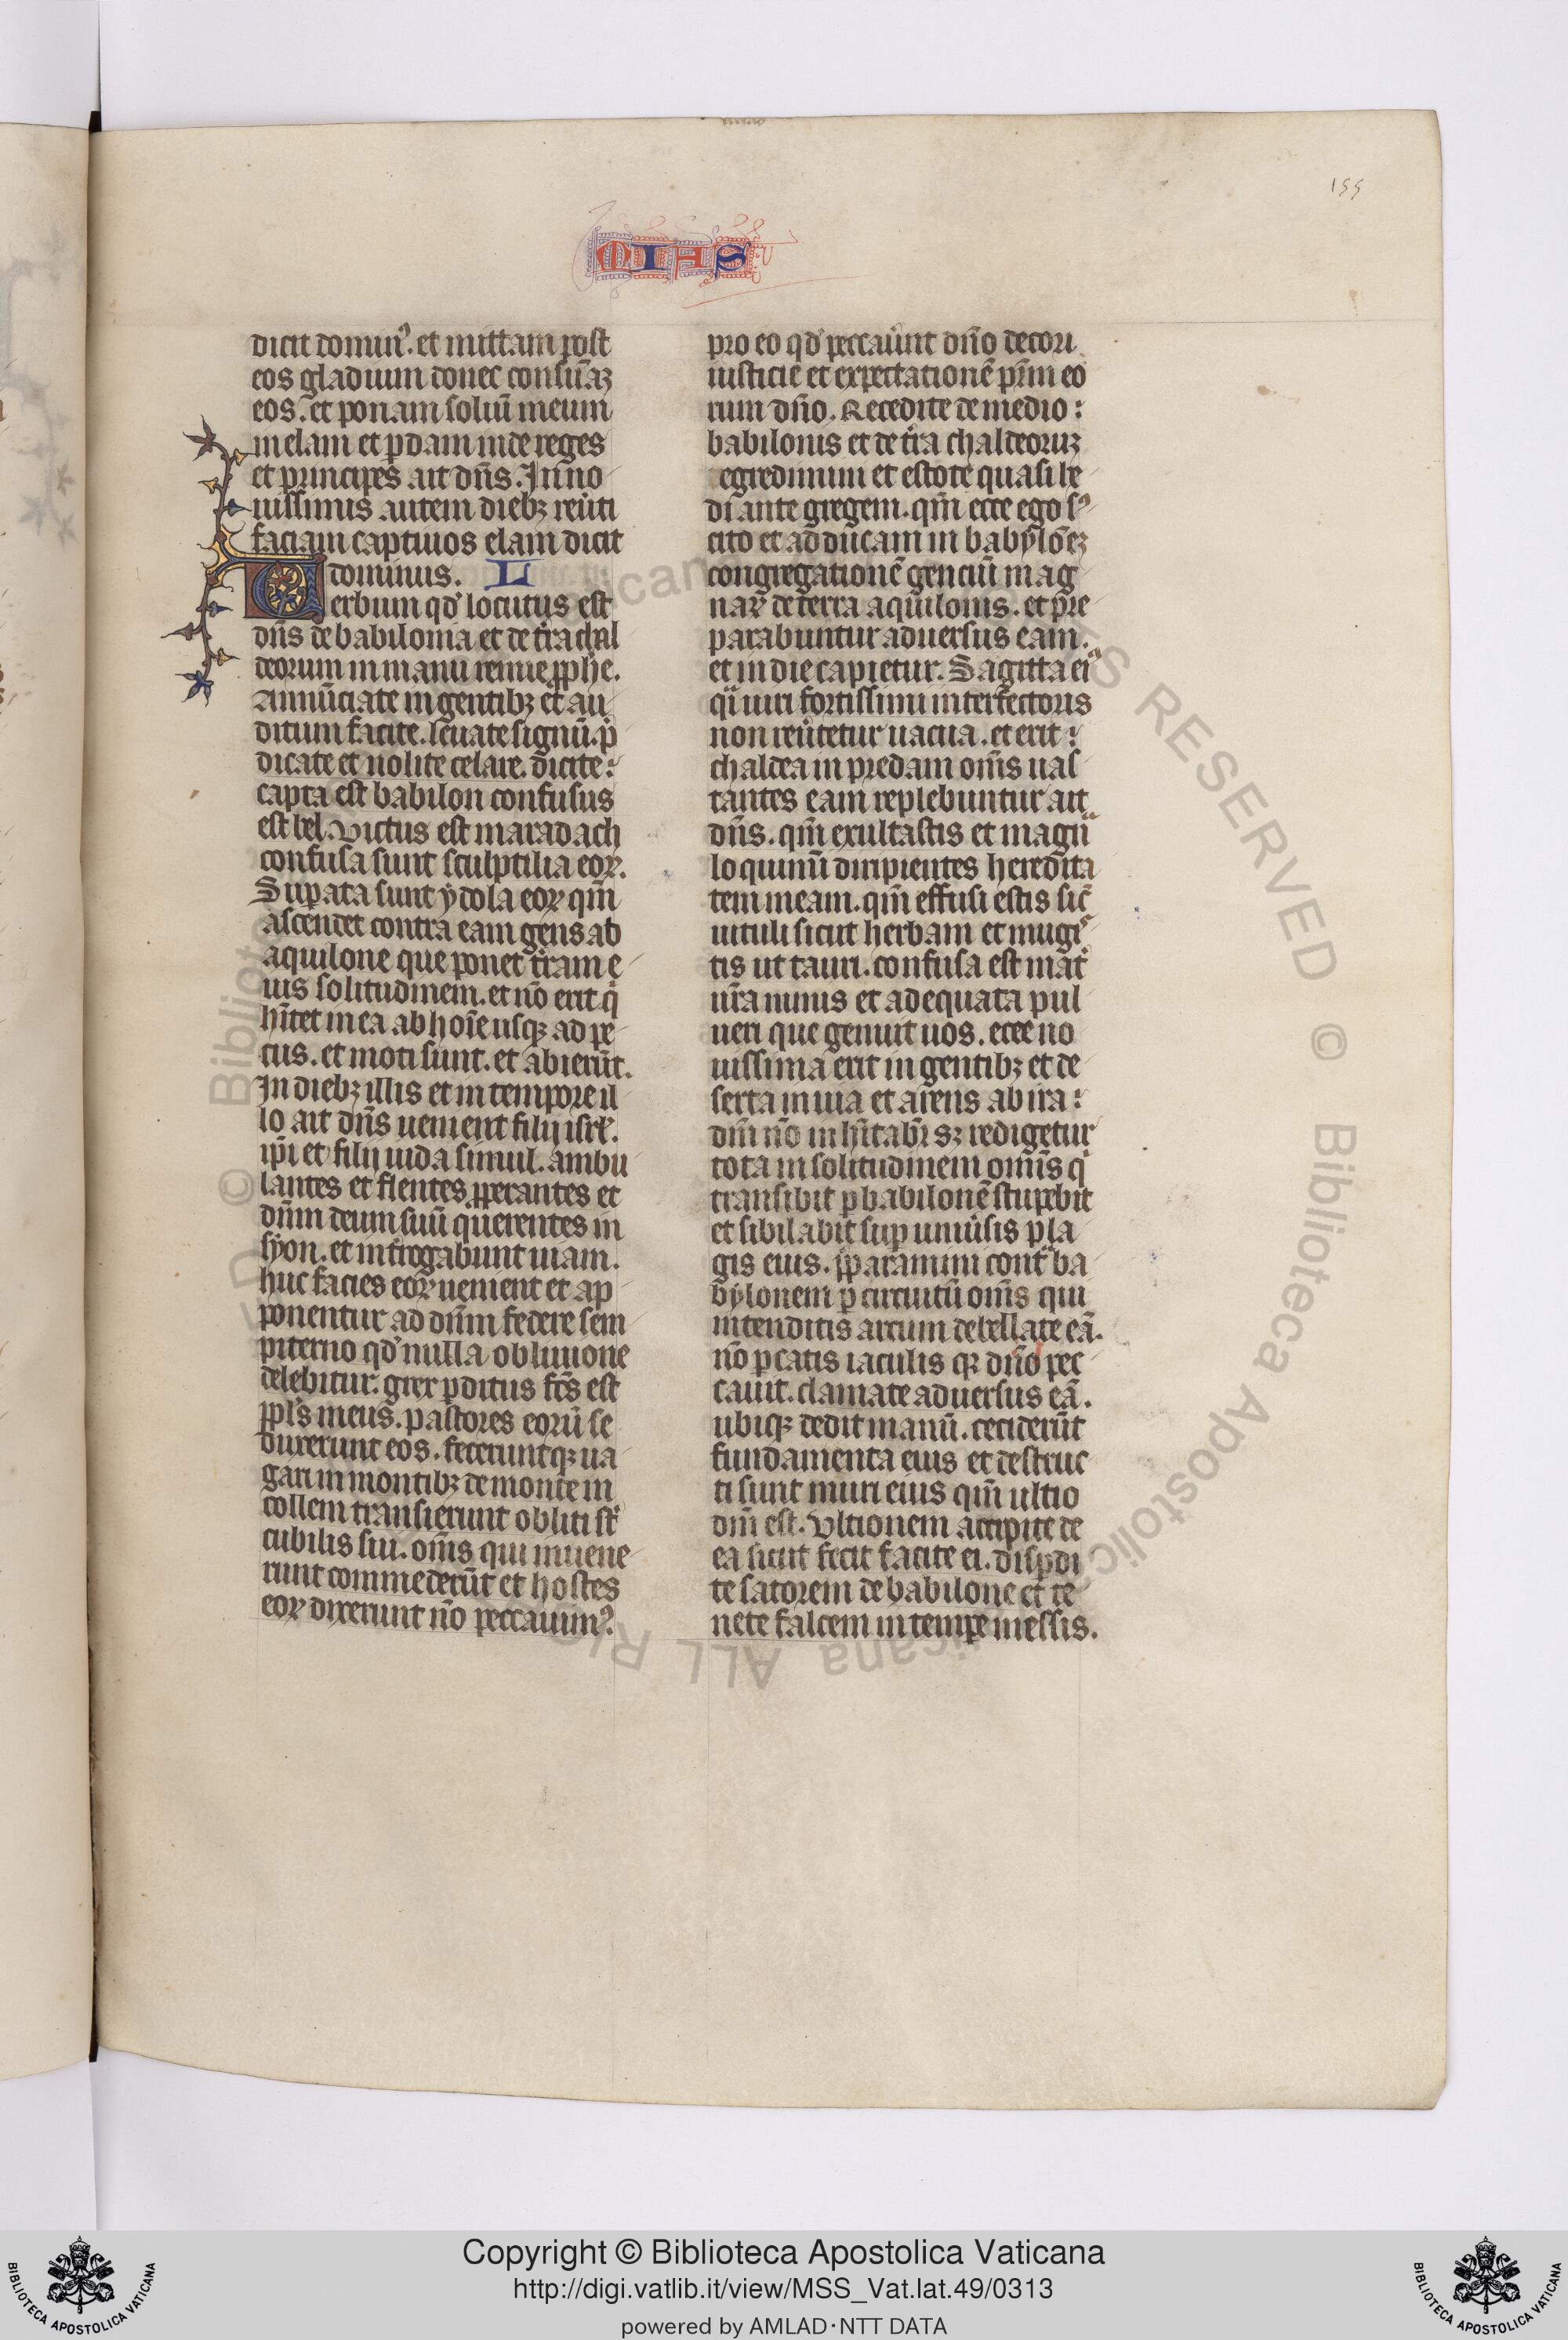 155
MIAS
dicit domin⁹. et mittam post
eos gladium donec consūaꝫ
eos. et ponam soliū meum
in elam et ꝑdam inde reges
et principes ait dn̄s. In no
uissimis autem diebꝫ reuͥti
faciam captiuos elam dicit
dominus. L
Uerbum qd̓ locutus est
dn̄s de babilonia et de tr̄a chal
deorum in manu iemie ꝓphe.
Annūciate in gentibꝫ et au
ditum facite. leuate signū. p̄
dicate et nolite celare. dicite:
capta est babilon confusus
est bel. Victus est maradach
confusa sunt sculptilia eoꝝ.
Suꝑata sunt ydola eoꝝ qm̄
ascendet contra eam gens ab
aquilone que ponet tr̄am e
ius solitudinem. et nō erit qͥ
hītet in ea ab hoīe usqꝫ ad pe
cus. et moti sunt. et abierūt.
In diebꝫ illis et in tempore il
lo ait dn̄s uenient filij isrl̓.
ip̄i et filij iuda simul. ambu
lantes et flentes ꝓperantes et
dn̄m deum suū querentes in
syon. et int̓rogabunt uiam.
huc facies eoꝝ uenient et ap
ponentur ad dn̄m federe sem
piterno qd̓ nulla obliuione
delebitur. grex ꝑditus fc̄s est
ppl̓s meus. pastores eorū se
duxerunt eos. feceruntqꝫ ua
gari in montibꝫ de monte in
collem transierunt obliti st̄
cubilis sui. om̄s qui inuene
runt commederūt et hostes
eoꝝ dixerunt nō peccauim⁹.
pro eo qd̓ peccau̓unt dn̄o decori
iusticie et expectationē pr̄m eo
rum dn̄o. Recedite de medio:
babilonis et de tr̄a chaldeoruꝫ
egredimini et estote quasi he
di ante gregem. qm̄ ecce ego s⁹
cito et adducam in babylōeꝫ
congregationē genciū mag
naꝝ de terra aquilonis. et pre
parabuntur aduersus eam.
et in die capietur. Sagitta ei⁹
qͣi uiri fortissimi interfectoris
non reu̓tetur uacua. et erit:
chaldea in predam om̄s uas
tantes eam replebuntur ait
dn̄s. qm̄ exultastis et magnͣ
loquimī diripientes heredita
tem meam. qm̄ effusi estis sic̄
uituli sicut herbam et mugi
tis ut tauri. confusa est mat̓
ur̄a nimis et adequata pul
ueri que genuit uos. ecce no
uissima erit in gentibꝫ et de
serta inuia et arens ab ira:
dn̄i nō inhītabr̄ sꝫ redigetur
tota in solitudinem omīs qͥ
transibit ꝑ babilonē stupebit
et sibilabit suꝑ uniu̓sis pla
gis eius. p̄paramini contͣ ba
bylonem ꝑ circuitū om̄s qui
intenditis arcum debellate eā.
nō ꝑcatis iaculis qꝛ dn̄o pec
cauit. clamate aduersus eā.
ubiqꝫ dedit manū. ceciderūt
fundamenta eius et destruc
ti sunt muri eius qm̄ ultio
dn̄i est. Vltionem accipite de
ea sicut fecit facite ei. disꝑdi
te satorem de babilone et te
nete falcem in temꝑe messis.
Copyright © Biblioteca Apostolica Vaticana
http://digi.vatlib.it/view/MSS_Vat.lat.49/0313
powered by AMLAD·NTT DATA
BIBLIOTECA APOSTOLICA VATICANA
BIBLIOTECA APOSTOLICA VATICANA